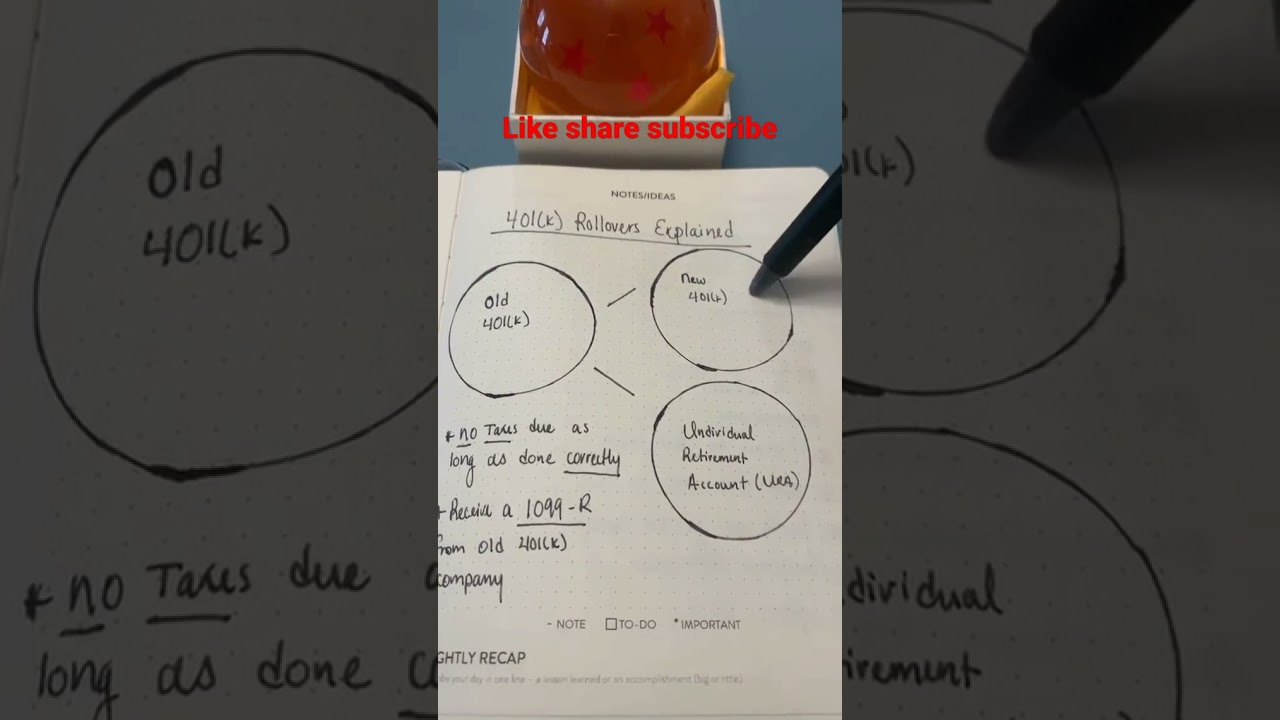 Like share subscribe
NOTES/IDEAS
401(k) Rollovers Explained
Old
401(k)
new
401(k)
* no Taxes due as
long as done correctly
Individual
Retirement
Account (IRA)
+ Receive a 1099-R
from old 401(k)
company
- NOTE □ TO-DO * IMPORTANT
GHTLY RECAP
your day in one line - a lesson learned or an accomplishment (big or little)
Old
401(k)
* no Taxes due
long as done
dividual
irement